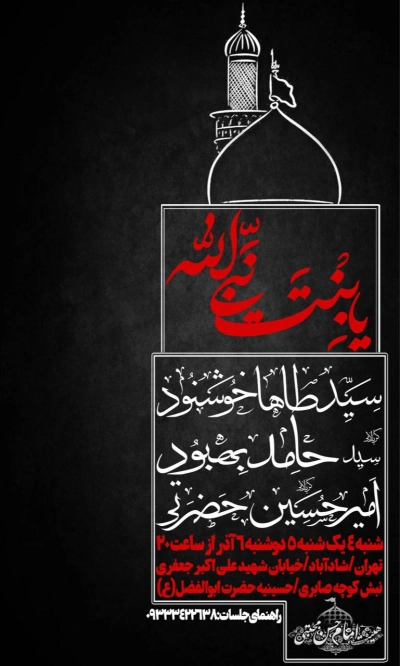 یا بِنْتَ نَبِیِّ اللّٰه
سیّد طاها خوشنود
کربلایی
سید حامد بهبودی
کربلایی
امیرحسین حضرتی
شنبه ٤ یک شنبه ٥ دوشنبه ٦ آذر از ساعت ٢٠
تهران/شادآباد/خیابان شهید علی اکبر جعفری
نبش کوچه صابری/حسینیه حضرت ابوالفضل(ع)
راهنمای جلسات:٠٩٣٣٣٤٢٢٦٣٨